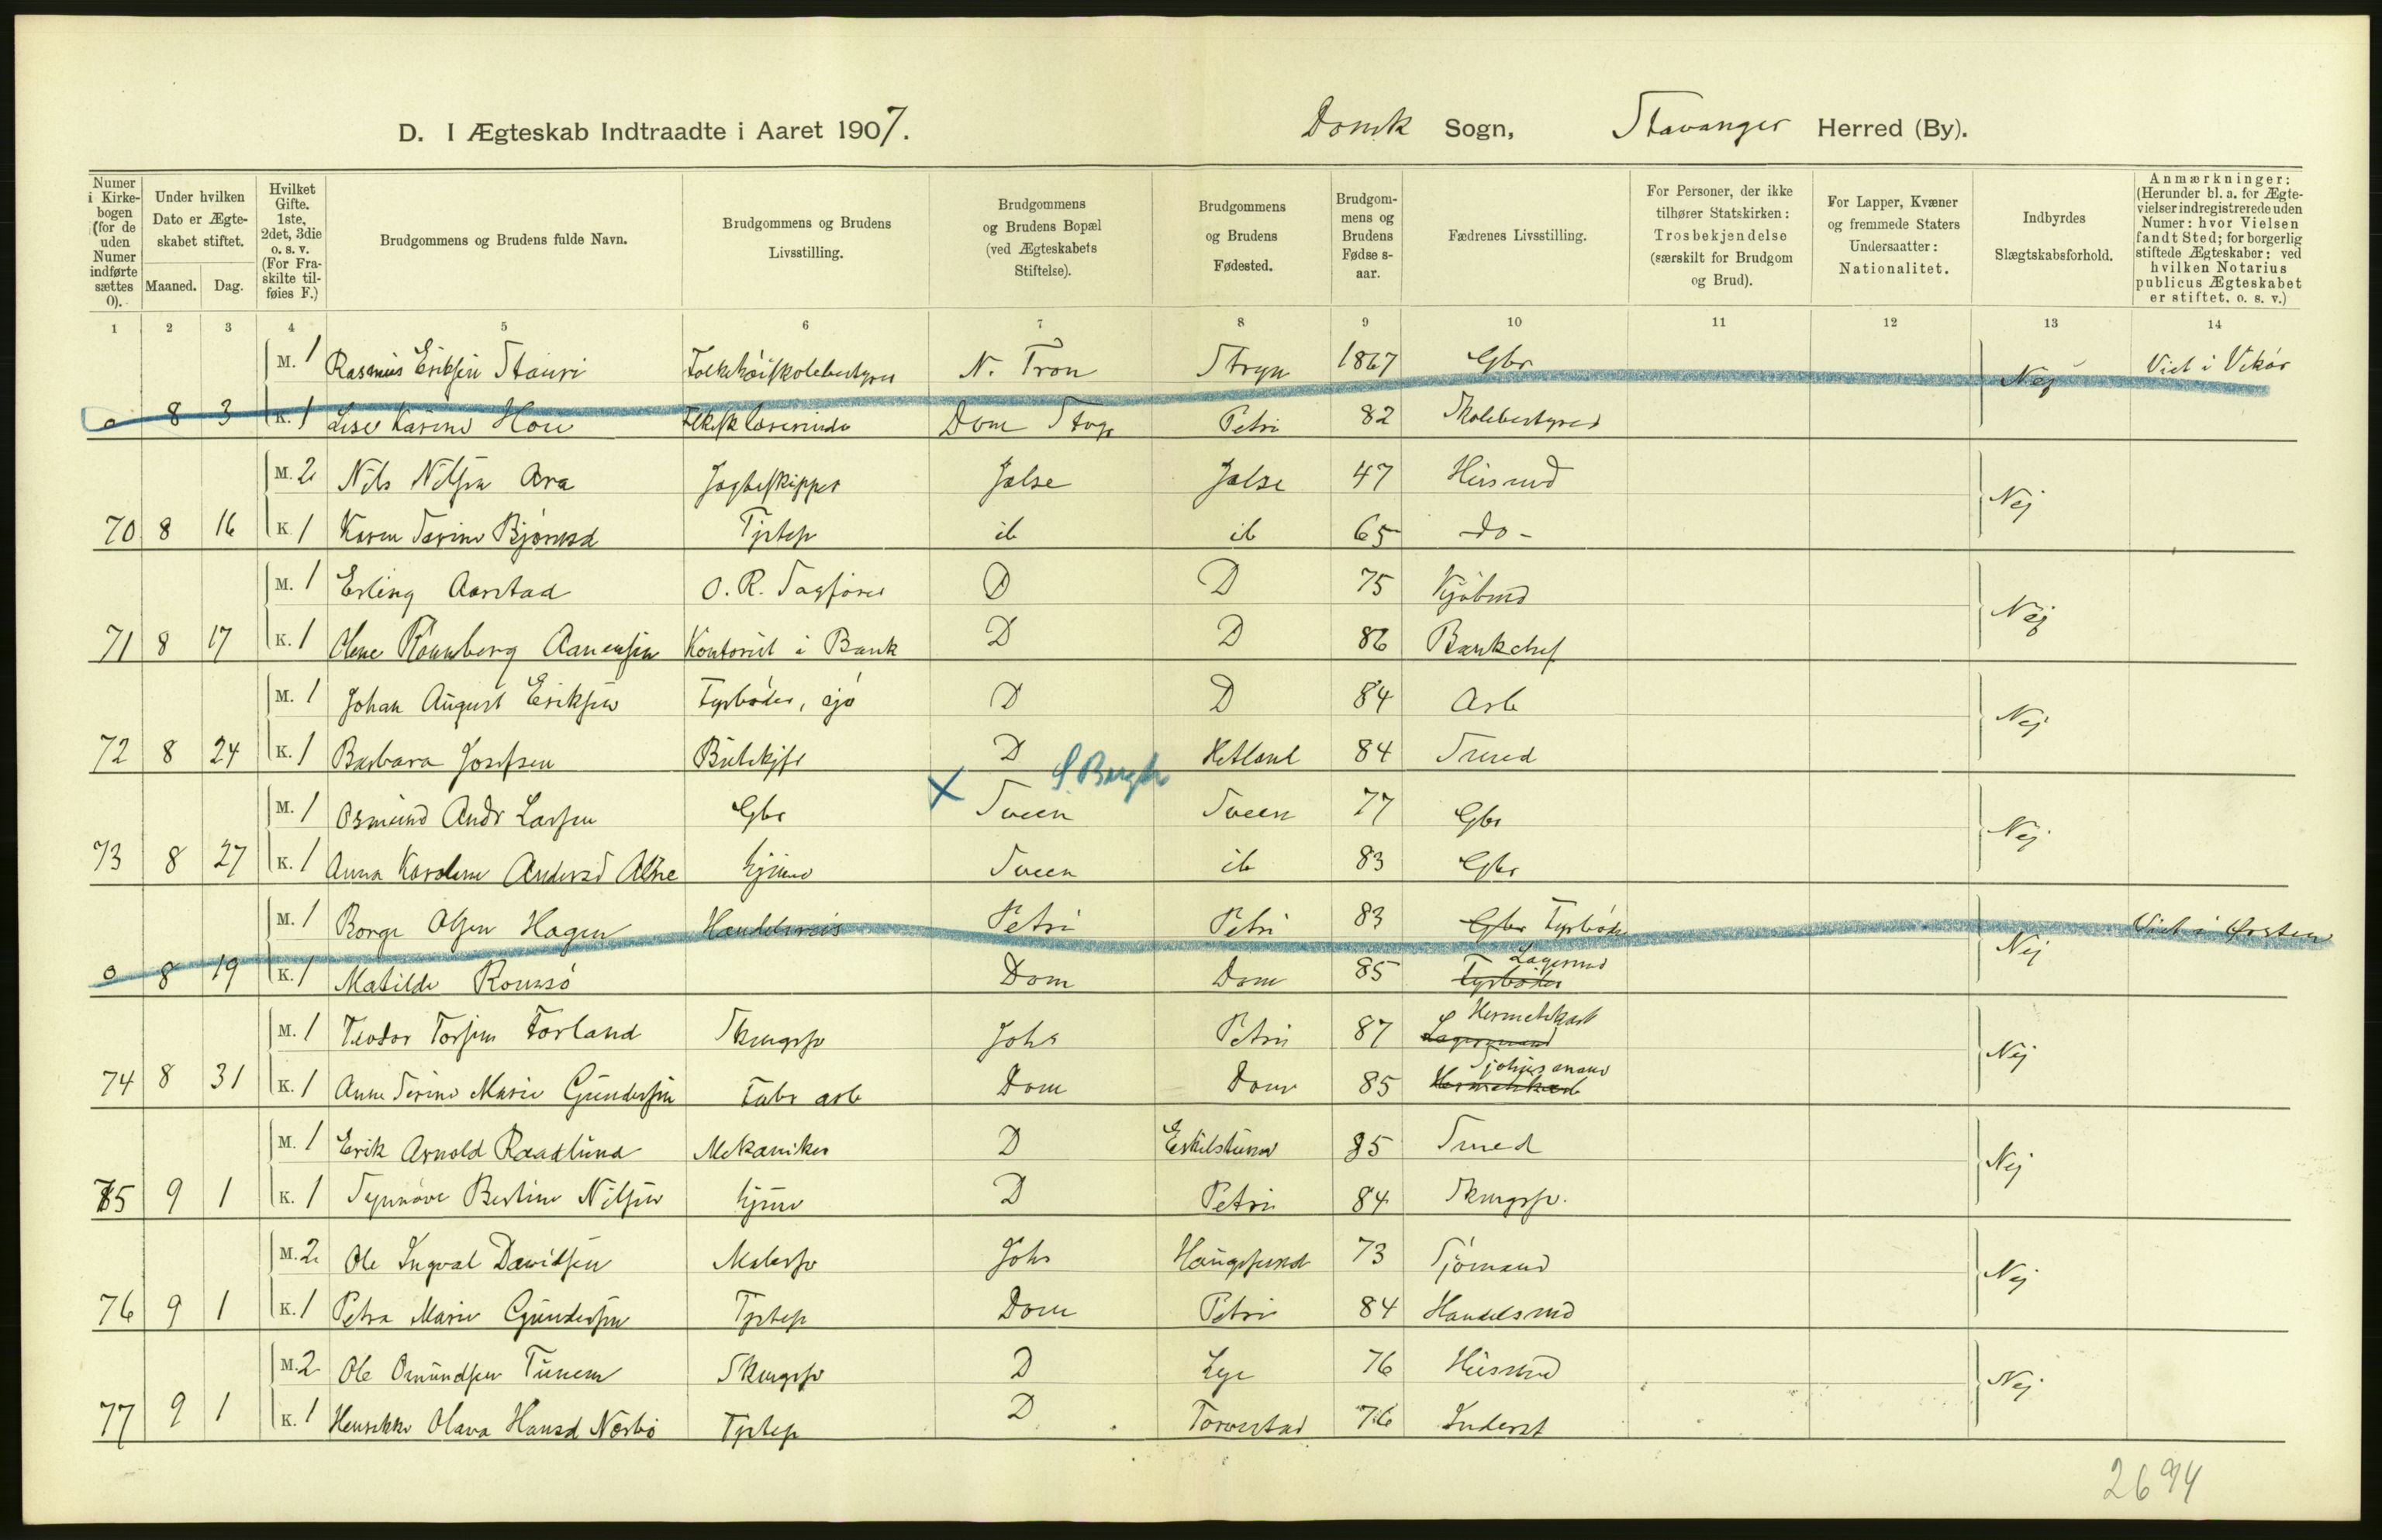 D. I Ægteskab Indtraadte i Aaret 1907. Domk Sogn, Stavanger Herred (By).
Numer i Kirkebogen (for de uden Numer indførte sættes 0).
Under hvilken Dato er Ægteskabet stiftet.
Maaned. Dag.
Hvilket Gifte. 1ste, 2det, 3die o. s. v. (For Fraskilte tilføies F.)
Brudgommens og Brudens fulde Navn.
Brudgommens og Brudens Livsstilling.
Brudgommens og Brudens Bopæl (ved Ægteskabets Stiftelse).
Brudgommens og Brudens Fødested.
Brudgommens og Brudens Fødselsaar.
Fædrenes Livsstilling.
For Personer, der ikke tilhører Statskirken: Trosbekjendelse (særskilt for Brudgom og Brud).
For Lapper, Kvæner og fremmede Staters Undersaatter: Nationalitet.
Indbyrdes Slægtskabsforhold.
Anmærkninger: (Herunder bl. a. for Ægtevielser indregistrerede uden Numer: hvor Vielsen fandt Sted; for borgerlig stiftede Ægteskaber: ved hvilken Notarius publicus Ægteskabet er stiftet. o. s. v.)
1 2 3 4 5 6 7 8 9 10 11 12 13 14
M. 1 Rasmus Eriksen Stauri Folkehöiskolebestyrer N. Tron Stryn 1867 Gbr Nej Viet i Vikör
0 8 3 K. 1 Lise Karine Dom Stvgr Petri 82 Skolebestyrer
M. 2 Nils Nilsen Ara Jagteskipper Jelse Jelse 47 Husmd Nej
70 8 16 K. 1 Karen Serine Bjørnsd Tjstep ib ib 65 do -
M. 1 Erling Aarstad O. R. Sagfører D D 75 Kjøbmd Nej
71 8 17 K. 1 Olene Rønneberg Aanensen Kontorist i Bank D D 86 Bankchef
M. 1 Johan August Eriksen Fyrböder, sjö D D 84 Arb Nej
72 8 24 K. 1 Barbara Josefsen Butikjfr D Hetland 84 Smed
M. 1 Osmund Andr Larsen Gbr X Sveen Sveen 77 Gbr Nej
73 8 27 K. 1 Anna Karoline Andersd Hjeme Sveen ib 83 Gbr
M. 1 Borge Olsen Hagen Handelsreis Petri Petri 83 Gbr Fyrböder Nej Viet i
0 8 19 K. 1 Matilde Romsö Dom Dom 85 Fyrböder Lagermd
M. 1 Teodor Torsen Torland Skmgsv Johs Petri 87 Lagermand Hermetikarb Nej
74 8 31 K. 1 Anne Serine Marie Gundersen Fabr arb Dom Dom 85 Hermetikarb
M. 1 Erik Arnold Raadlund Mekaniker D Eskilstuna 85 Smed Nej
75 9 1 K. 1 Synnöve Bertine Nilsen hjeme D Petri 84 Skmgsv.
M. 2 Ole Ingval Davidsen Malersv Johs Haugesund 73 Sjömand Nej
76 9 1 K. 1 Petra Marie Gundersen Tjstep Dom Petri 84 Handelsmd
M. 2 Ole Omundsen Tunem Skmgsv D Lye 76 Husmd Nej
77 9 1 K. 1 Henrikke Olava Hansd Nesbö Tjstep D Torvestad 76 Inderst
2694